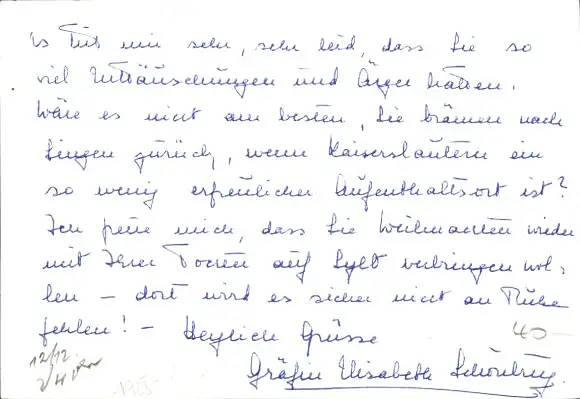 Es tut mir sehr, sehr leid, dass Sie so
viel Enttäuschungen und Ärger hatten.
Wäre es nicht am besten, Sie kämen nach
Singen zurück, wenn Kaiserslautern ein
so wenig erfreulicher Aufenthaltsort ist?
Ich freue mich, dass Sie Weihnachten wieder
mit Ihrer Tochter auf Sylt verbringen wol-
len – dort wird es sicher nicht an Ruhe
fehlen! – Herzlich Grüsse
40-
12/12
Gräfin Elisabeth Schönburg